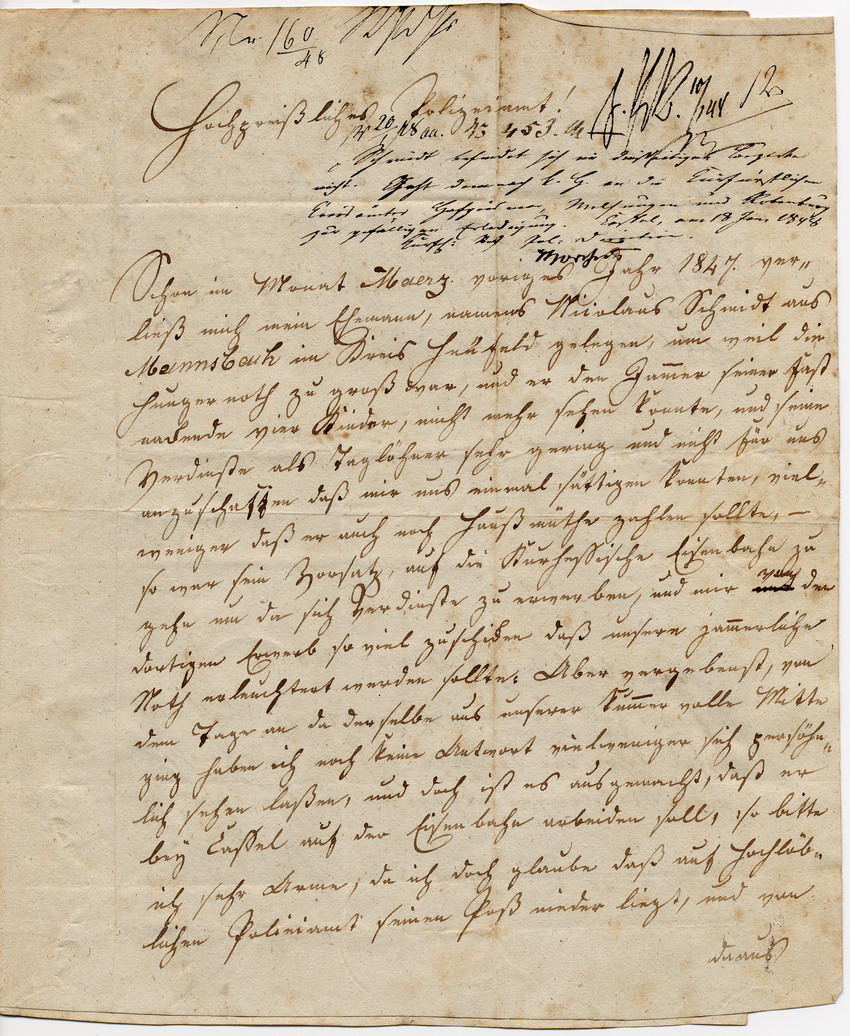 Nr 160/48
Hochpreißliches Polizeiamt!
12
20/1 48 No 453.
Schmidt befindet sich in diesseitigem
nicht. Geht demnach b. H. an die Kurfürstlichen
Kreisämter Hofgeismar, Melsungen und Rotenburg
zur gefälligen Erledigung. Cassel, am 13 Jan. 1848
Kurf: Pol. Direction.
Schon im Monat Maerz. voriges Jahr 1847. ver-
ließ mich mein Ehemann, namens Nicolaus Schmidt aus
Mannsbach im Kreis Hünfeld gelegen, um weil die
Hungernoth zu groß war, und er den Jammer seiner fast
nackende vier Kinder, nicht mehr sehen konnte, und seine
Verdinste als Taglöhner sehr gering und nicht für uns
anzuschaffen daß mir uns einmal sättigen konnten, viel-
weniger daß er auch noch Haußmüthe zahlen sollte, —
so war sein Vorsatz, auf die Kurhessische Eisenbahn zu
gehn um da sich Verdinste zu erwerben, und mir von den
dortigen Erwerb so viel zuschiken daß unsere jammerliche
Noth erleuchtert werden sollte: Aber vergebenst, von
dem Tage an da derselbe aus unserer Kummer volle Mitte
ging haben ich noch keine Antwort vielweniger sich persöhn-
lich sehen laßen, und doch ist es ausgemacht, daß er
bey Cassel auf der Eisenbahn arbeiden soll, so bitte
ich sehr Arme, da ich doch glaube daß auf Hochlöb-
lichen Polizeiamt seinen Paß nieder liegt, und von
daaus